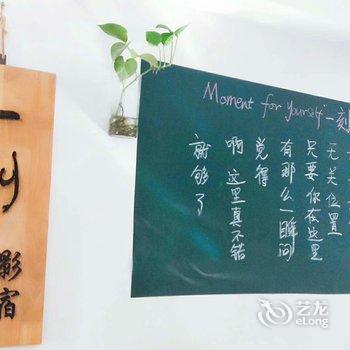 一刻
影宿
Moment for yourself 一刻
无关位置
只要你在这里
有那么一瞬间
觉得
啊 这里真不错
就够了
艺龙
eLong